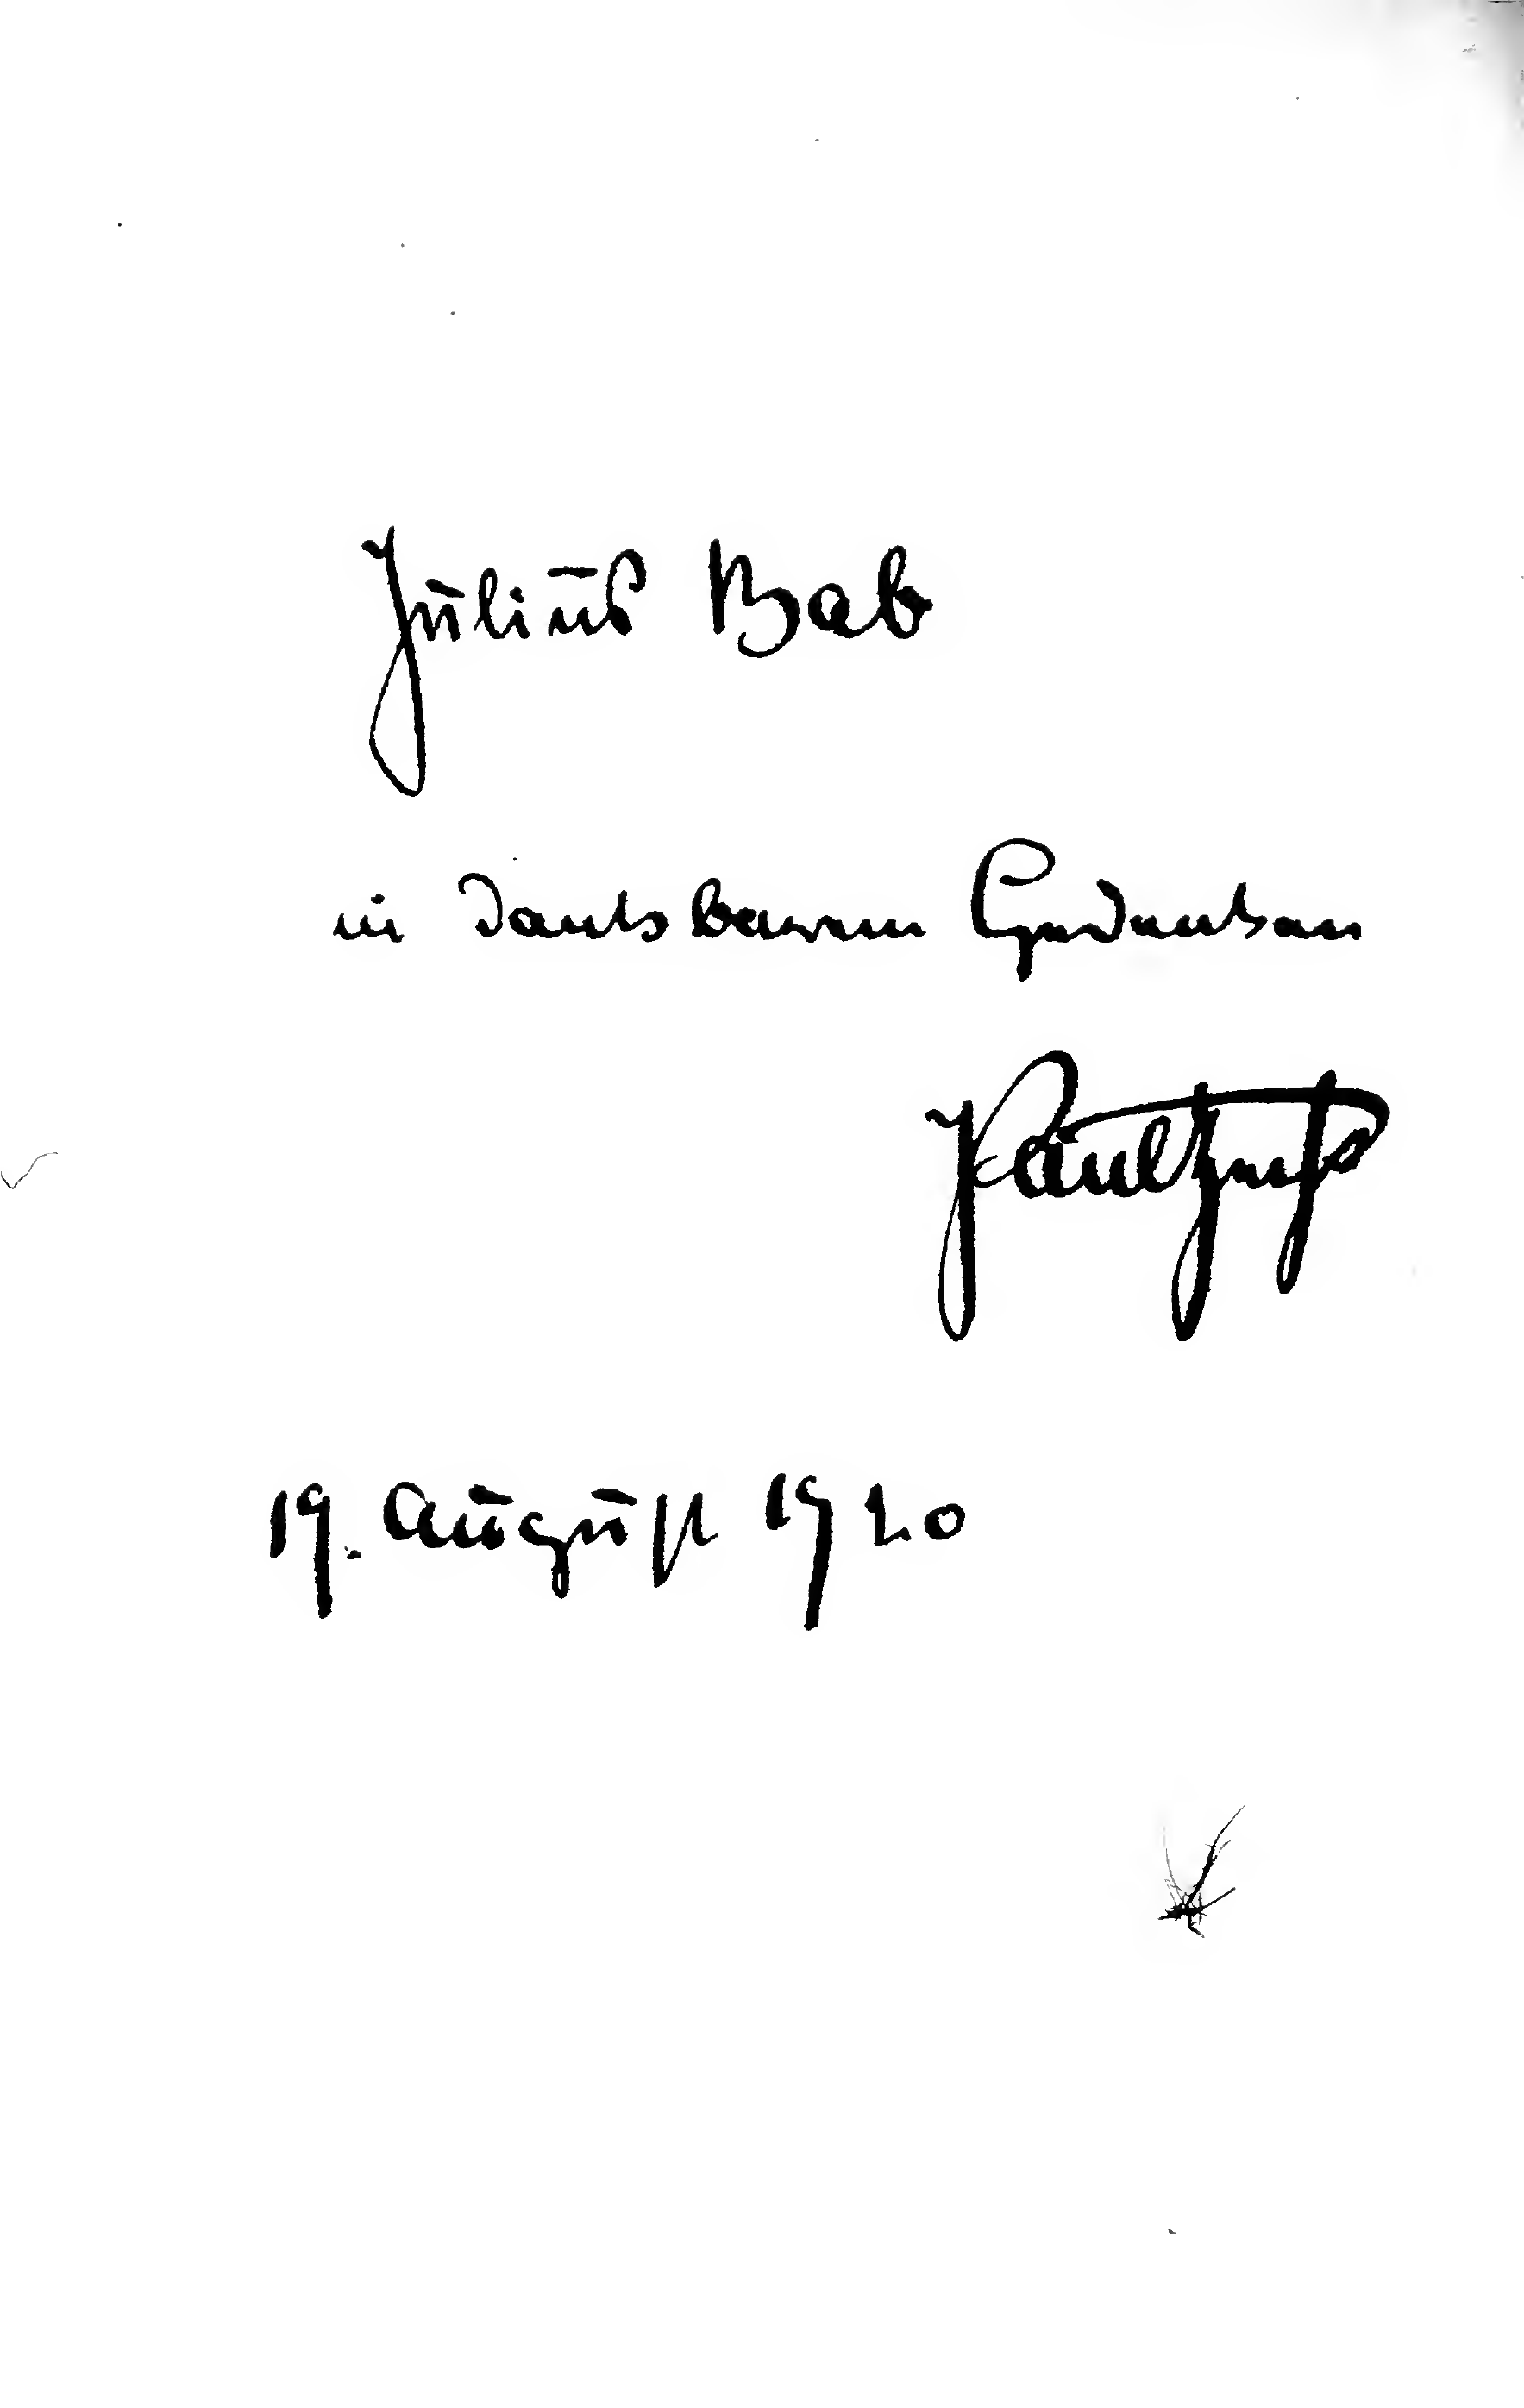 Julius Bab
in dankbarem Gedenken
Paul
19. August 1920